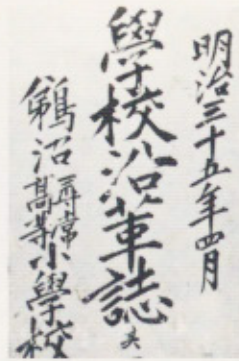 明治三十五年四月
學校沿革誌 其一
鵠沼尋常高等小學校